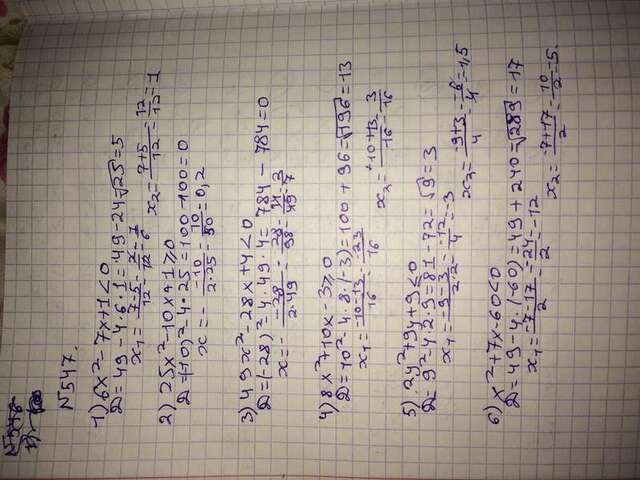 N547.
1) 6x² - 7x + 1 < 0
D = 49 - 4 · 6 · 1 = 49 - 24 = √25 = 5
x₁ = (7-5)/12 = 2/12 = 7/6 x₂ = (7+5)/12 = 12/12 = 1
2) 25x² - 10x + 1 ≥ 0
D = (-10)² - 4 · 25 = 100 - 100 = 0
x = - (-10)/(2·25) = 10/50 = 0,2
3) 49x² - 28x + 4 < 0
D = (-28)² = 4 · 49 · 4 = 784 - 784 = 0
x = - (-28)/(2·49) = 28/98 = 14/49 = 2/7
4) 8x² + 10x - 3 ≥ 0
D = 10² - 4 · 8 · (-3) = 100 + 96 = √196 = 13
x₁ = (-10-13)/16 = -23/16 x₂ = (-10+13)/16 = 3/16
5) 2y² + 9y + 9 ≤ 0
D = 9² - 4 · 2 · 9 = 81 - 72 = √9 = 3
x₁ = (-9-3)/(2·2) = -12/4 = -3 x₂ = (-9+3)/4 = -6/4 = 1,5
6) x² + 7x - 60 < 0
D = 49 - 4 · (-60) = 49 + 240 = √289 = 17
x₁ = (-7-17)/2 = -24/2 = -12 x₂ = (-7+17)/2 = 10/2 = 5.